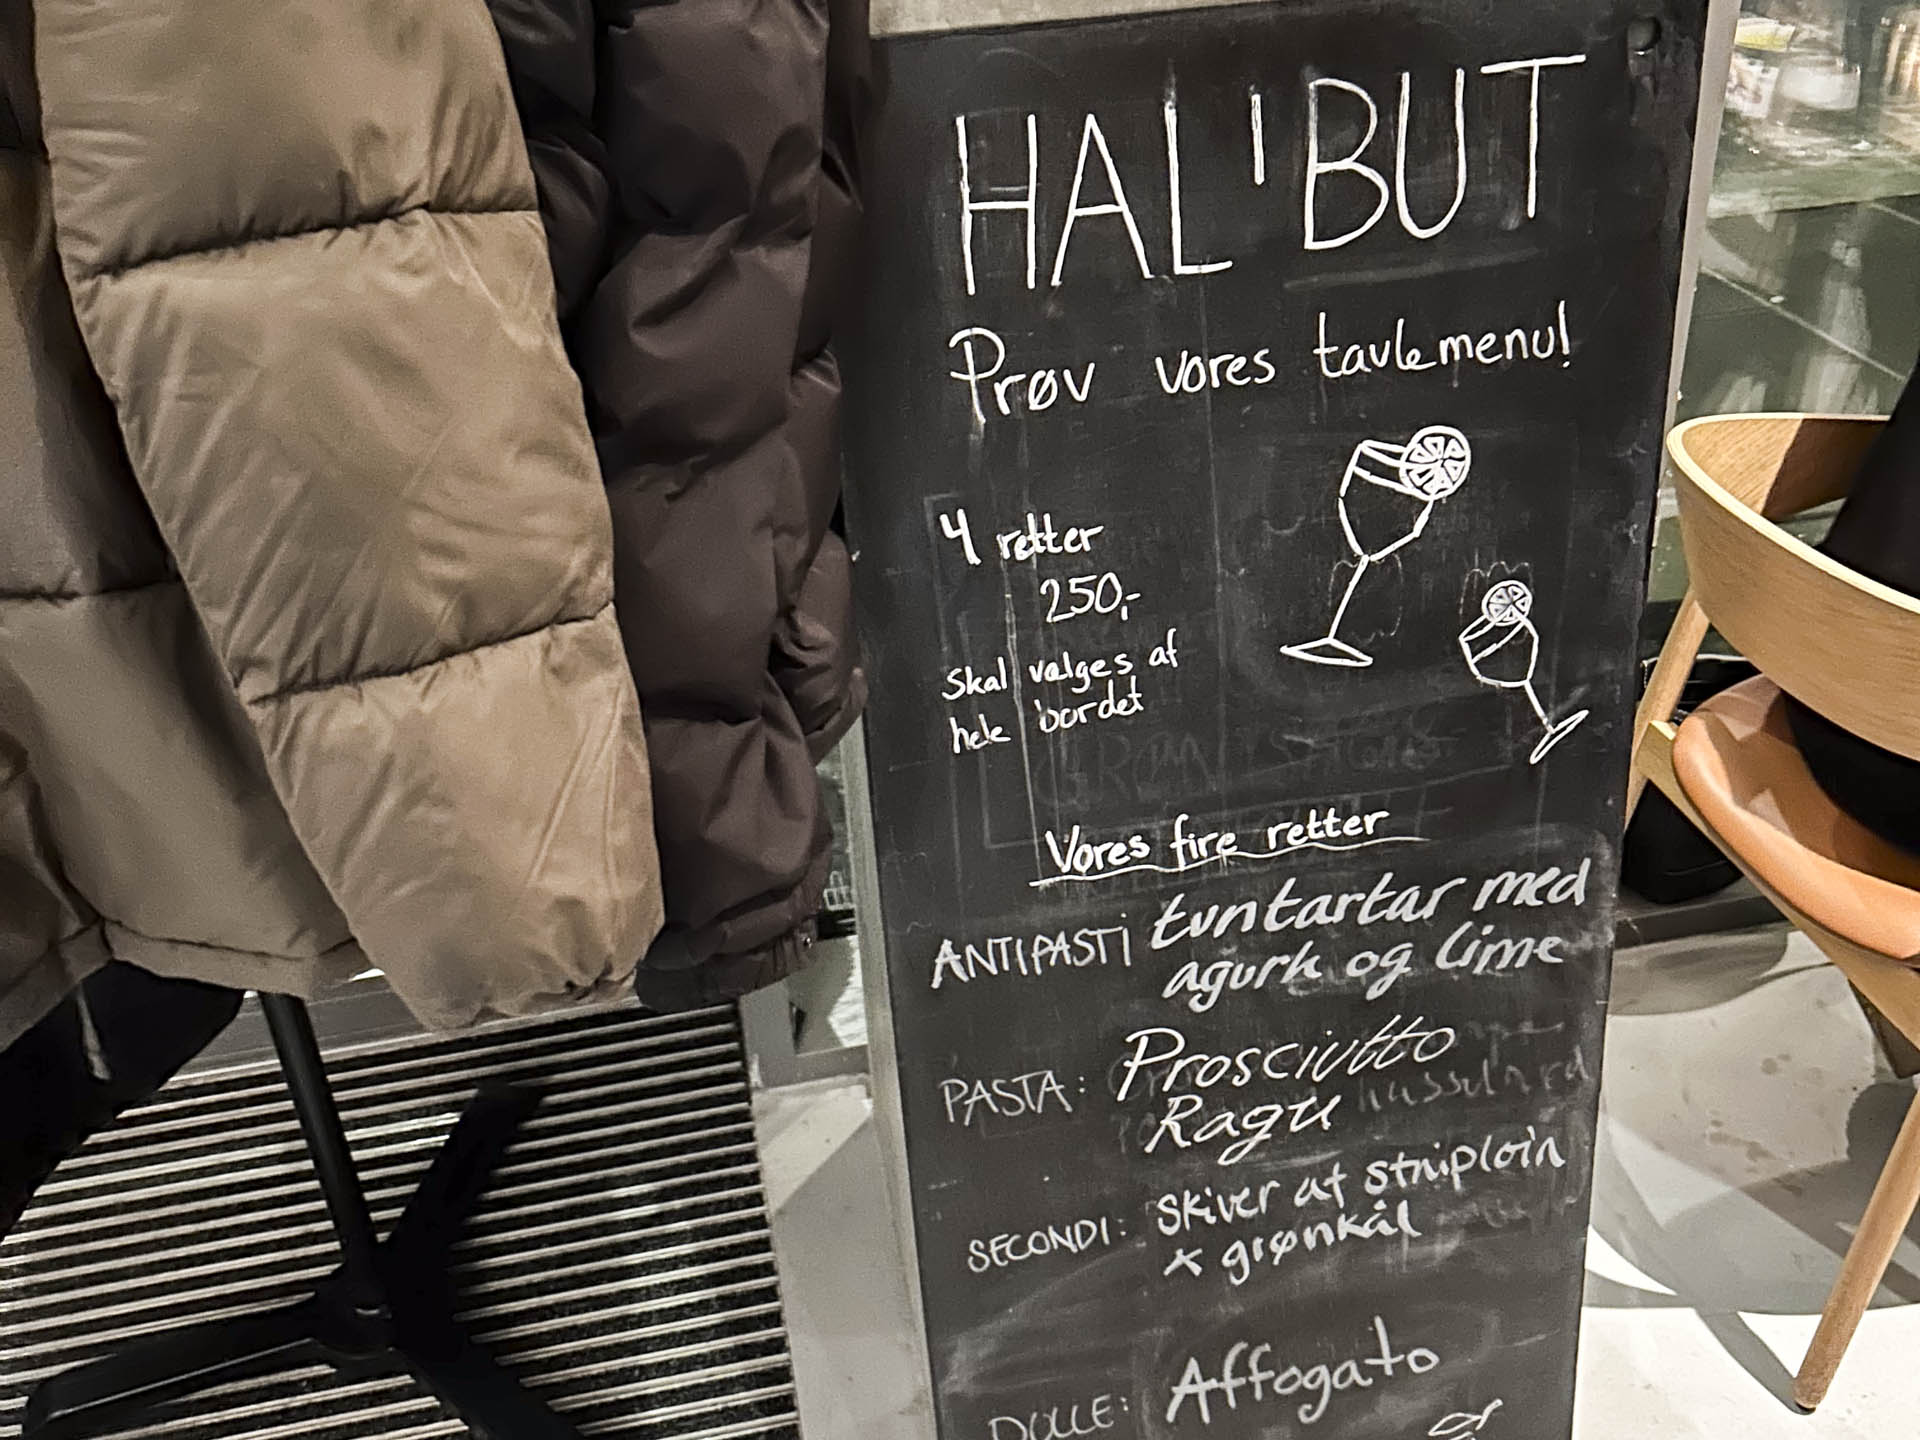 HAL'BUT
Prøv vores tavlemenu!
4 retter
250,-
Skal vælges af
hele bordet
Vores fire retter
ANTIPASTI tuntartar med
agurk og lime
PASTA: Prosciutto
Ragu
SECONDI: Skiver af striploin
x grønkål
DOLCE: Affogato